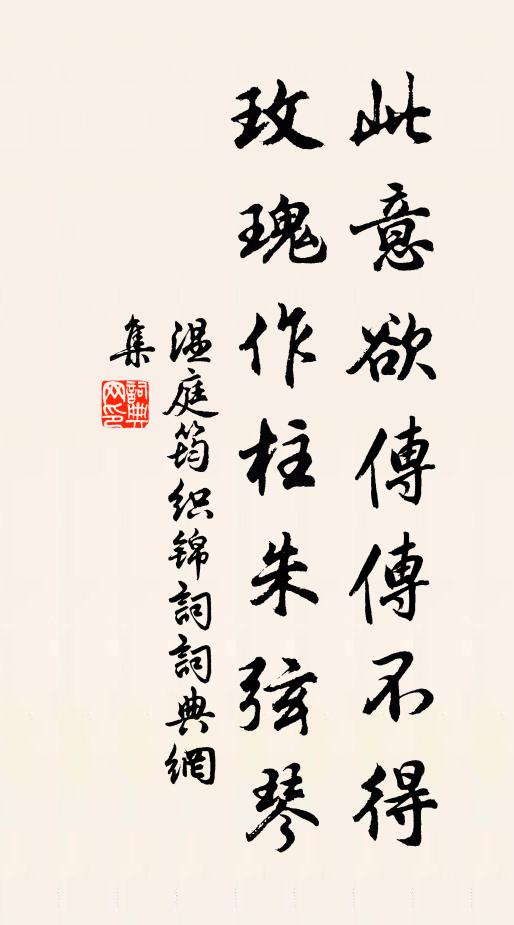 此意欲傳傳不得
玫瑰作柱朱弦琴
温庭筠织锦詞詞典網
集
詞典
网印